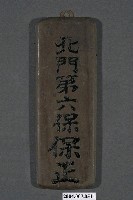 北門第六保保正